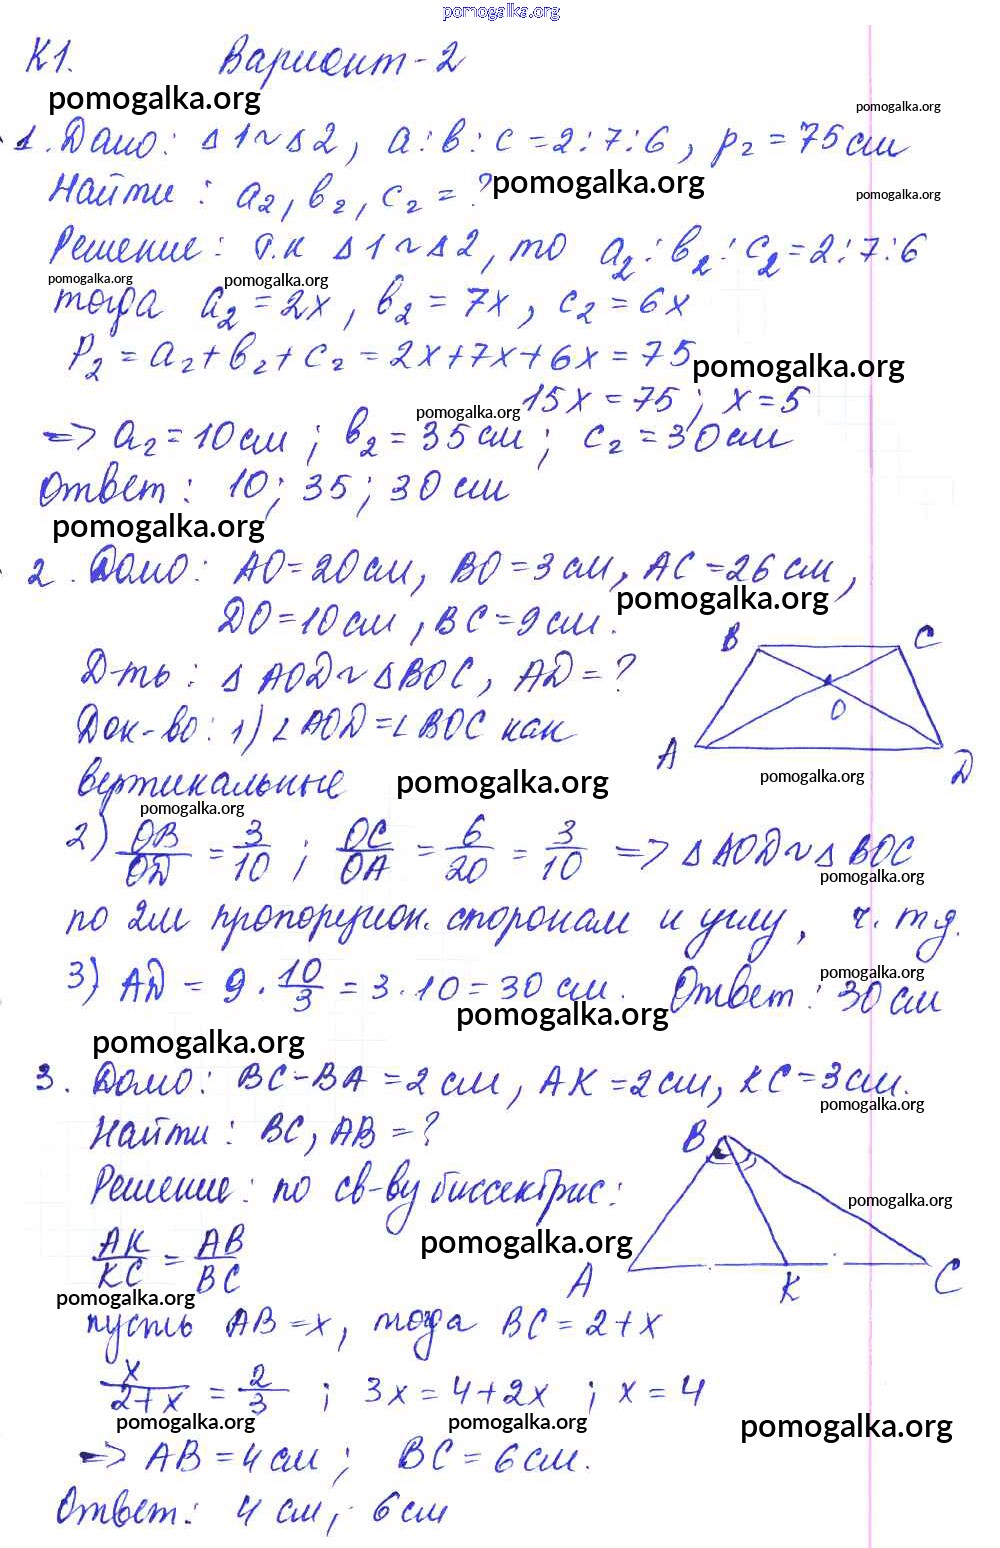 pomogalka.org
К1. Вариант-2
pomogalka.org pomogalka.org
1. Дано: Δ1 ~ Δ2, a:в:c = 2:7:6, p₂ = 75 см
Найти: a₂, в₂, c₂ = ? pomogalka.org pomogalka.org
Решение: т.к Δ1 ~ Δ2, то a₂:в₂:c₂ = 2:7:6
pomogalka.org pomogalka.org
тогда a₂ = 2x, в₂ = 7x, c₂ = 6x
P₂ = a₂ + в₂ + c₂ = 2x + 7x + 6x = 75 pomogalka.org
15x = 75; x = 5
pomogalka.org
=> a₂ = 10 см; в₂ = 35 см; c₂ = 30 см
Ответ: 10; 35; 30 см
pomogalka.org
2. Дано: AO = 20 см, BO = 3 см, AC = 26 см,
pomogalka.org
DO = 10 см, BC = 9 см.
B C
Д-ть: Δ AOD ~ Δ BOC, AD = ?
O
Док-во: 1) ∠ AOD = ∠ BOC как
A D
вертикальные pomogalka.org pomogalka.org
pomogalka.org
2) OB/OD = 3/10; OC/OA = 6/20 = 3/10 => Δ AOD ~ Δ BOC
pomogalka.org
по 2м пропорцион. сторонам и углу, ч. т д.
3) AD = 9 · 10/3 = 3 · 10 = 30 см. Ответ: 30 см
pomogalka.org
pomogalka.org
pomogalka.org
3. Дано: BC - BA = 2 см, AK = 2 см, KC = 3 см.
pomogalka.org
Найти: BC, AB = ?
B
Решение: по св-ву биссектрис:
pomogalka.org
AK/KC = AB/BC pomogalka.org
A K C
pomogalka.org
пусть AB = x, тогда BC = 2 + x
x/2+x = 2/3; 3x = 4 + 2x; x = 4
pomogalka.org pomogalka.org pomogalka.org
=> AB = 4 см; BC = 6 см.
Ответ: 4 см; 6 см